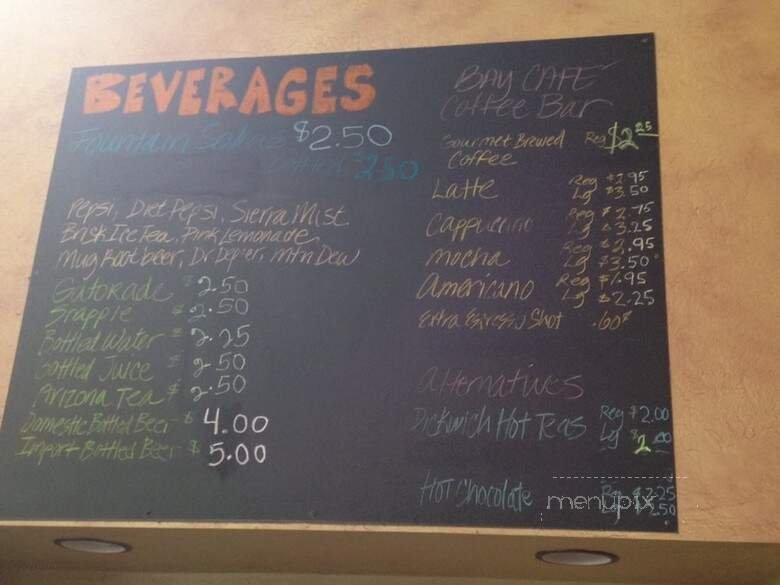 BEVERAGES
Fountain $2.50
$2.50
Pepsi, Diet Pepsi, Sierra Mist
Brisk Ice Tea, Pink Lemonade,
Mug Root beer, Dr. Pepper, Mtn Dew
Gatorade $2.50
Snapple $2.50
Bottled Water $2.25
Bottled Juice $2.50
Arizona Tea $2.50
Domestic Bottled Beer $4.00
Import Bottled Beer $5.00
BAY CAFE
Coffee Bar
Gourmet Brewed Reg $2.25
Coffee
Latte Reg $2.95
Lg $3.50
Cappuccino Reg $2.75
Lg $3.25
Mocha Reg $2.95
Lg $3.50
Americano Reg $1.95
Lg $2.25
Extra Espresso Shot .60¢
Alternatives
Hot Teas Reg $2.00
Lg $2.00
Hot Chocolate Reg $2.25
Lg $2.50
menupix